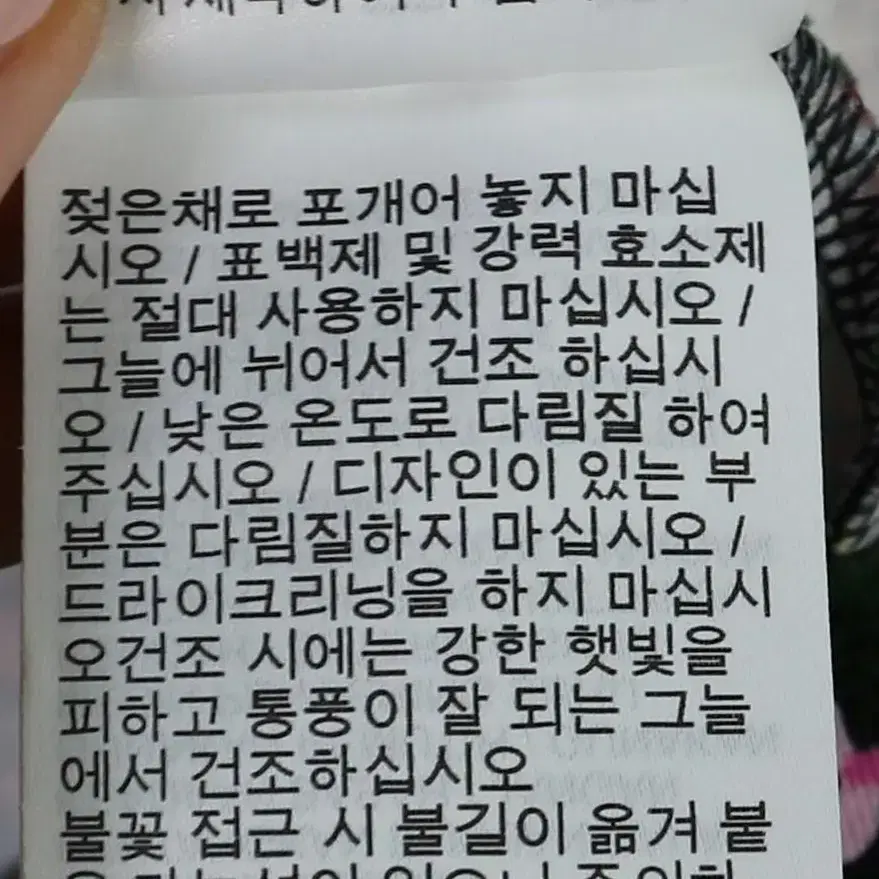 젖은채로 포개어 놓지 마십
시오 / 표백제 및 강력 효소제
는 절대 사용하지 마십시오 /
그늘에 뉘어서 건조 하십시
오 / 낮은 온도로 다림질 하여
주십시오 / 디자인이 있는 부
분은 다림질하지 마십시오 /
드라이크리닝을 하지 마십시
오건조 시에는 강한 햇빛을
피하고 통풍이 잘 되는 그늘
에서 건조하십시오
불꽃 접근 시 불길이 옮겨 붙